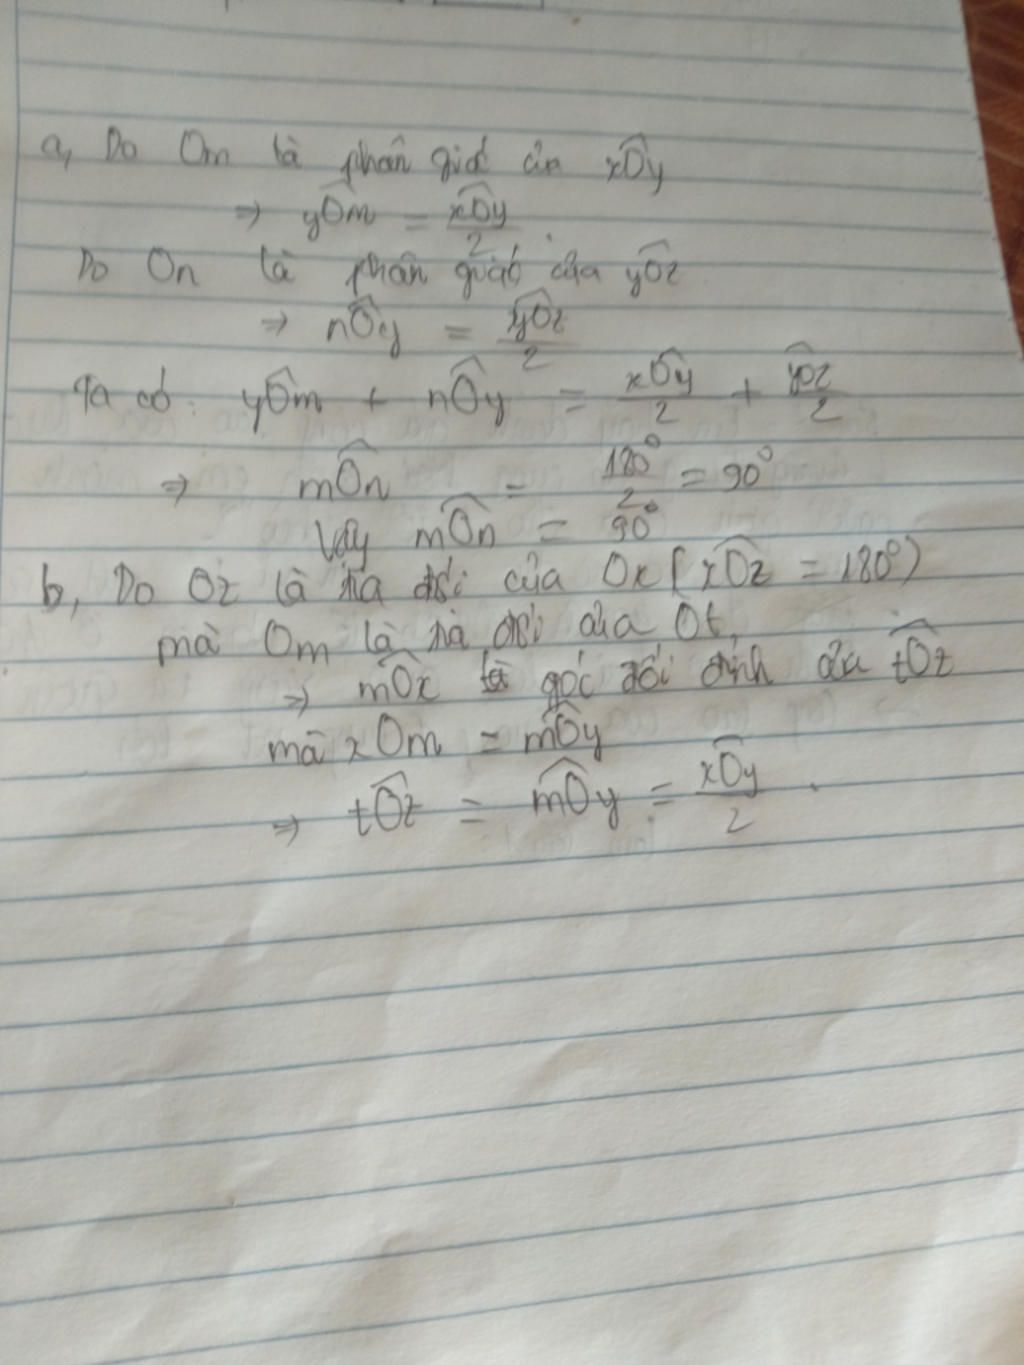 a, Do Om là phân giác của xÔy
⇒ yÔm = xÔy/2.
Do On là phân giác của yÔz
⇒ nÔy = yÔz/2
Ta có: yÔm + nÔy = xÔy/2 + yÔz/2
⇒ mÔn = 180°/2 = 90°
Vậy mÔn = 90°
b, Do Oz là tia đối của Ox (xÔz = 180°)
mà Om là tia đối của Ot,
⇒ mÔx là góc đối đỉnh của tÔz
mà xOm = mÔy
⇒ tÔz = mÔy = xÔy/2.